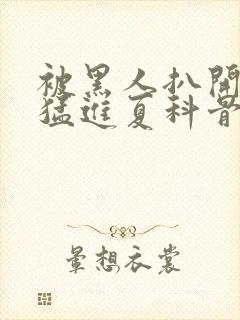 被黑人扒開
猛進夏科骨
暈想衣裳